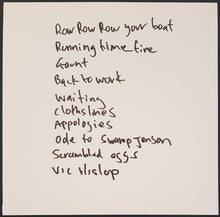 Row Row Row your boat
Running time fire
Gaunt
Back to work
Waiting
Clothslines
Appologies
Ode to Swamp Jenson
Scrambled eggs
Vic Hislop